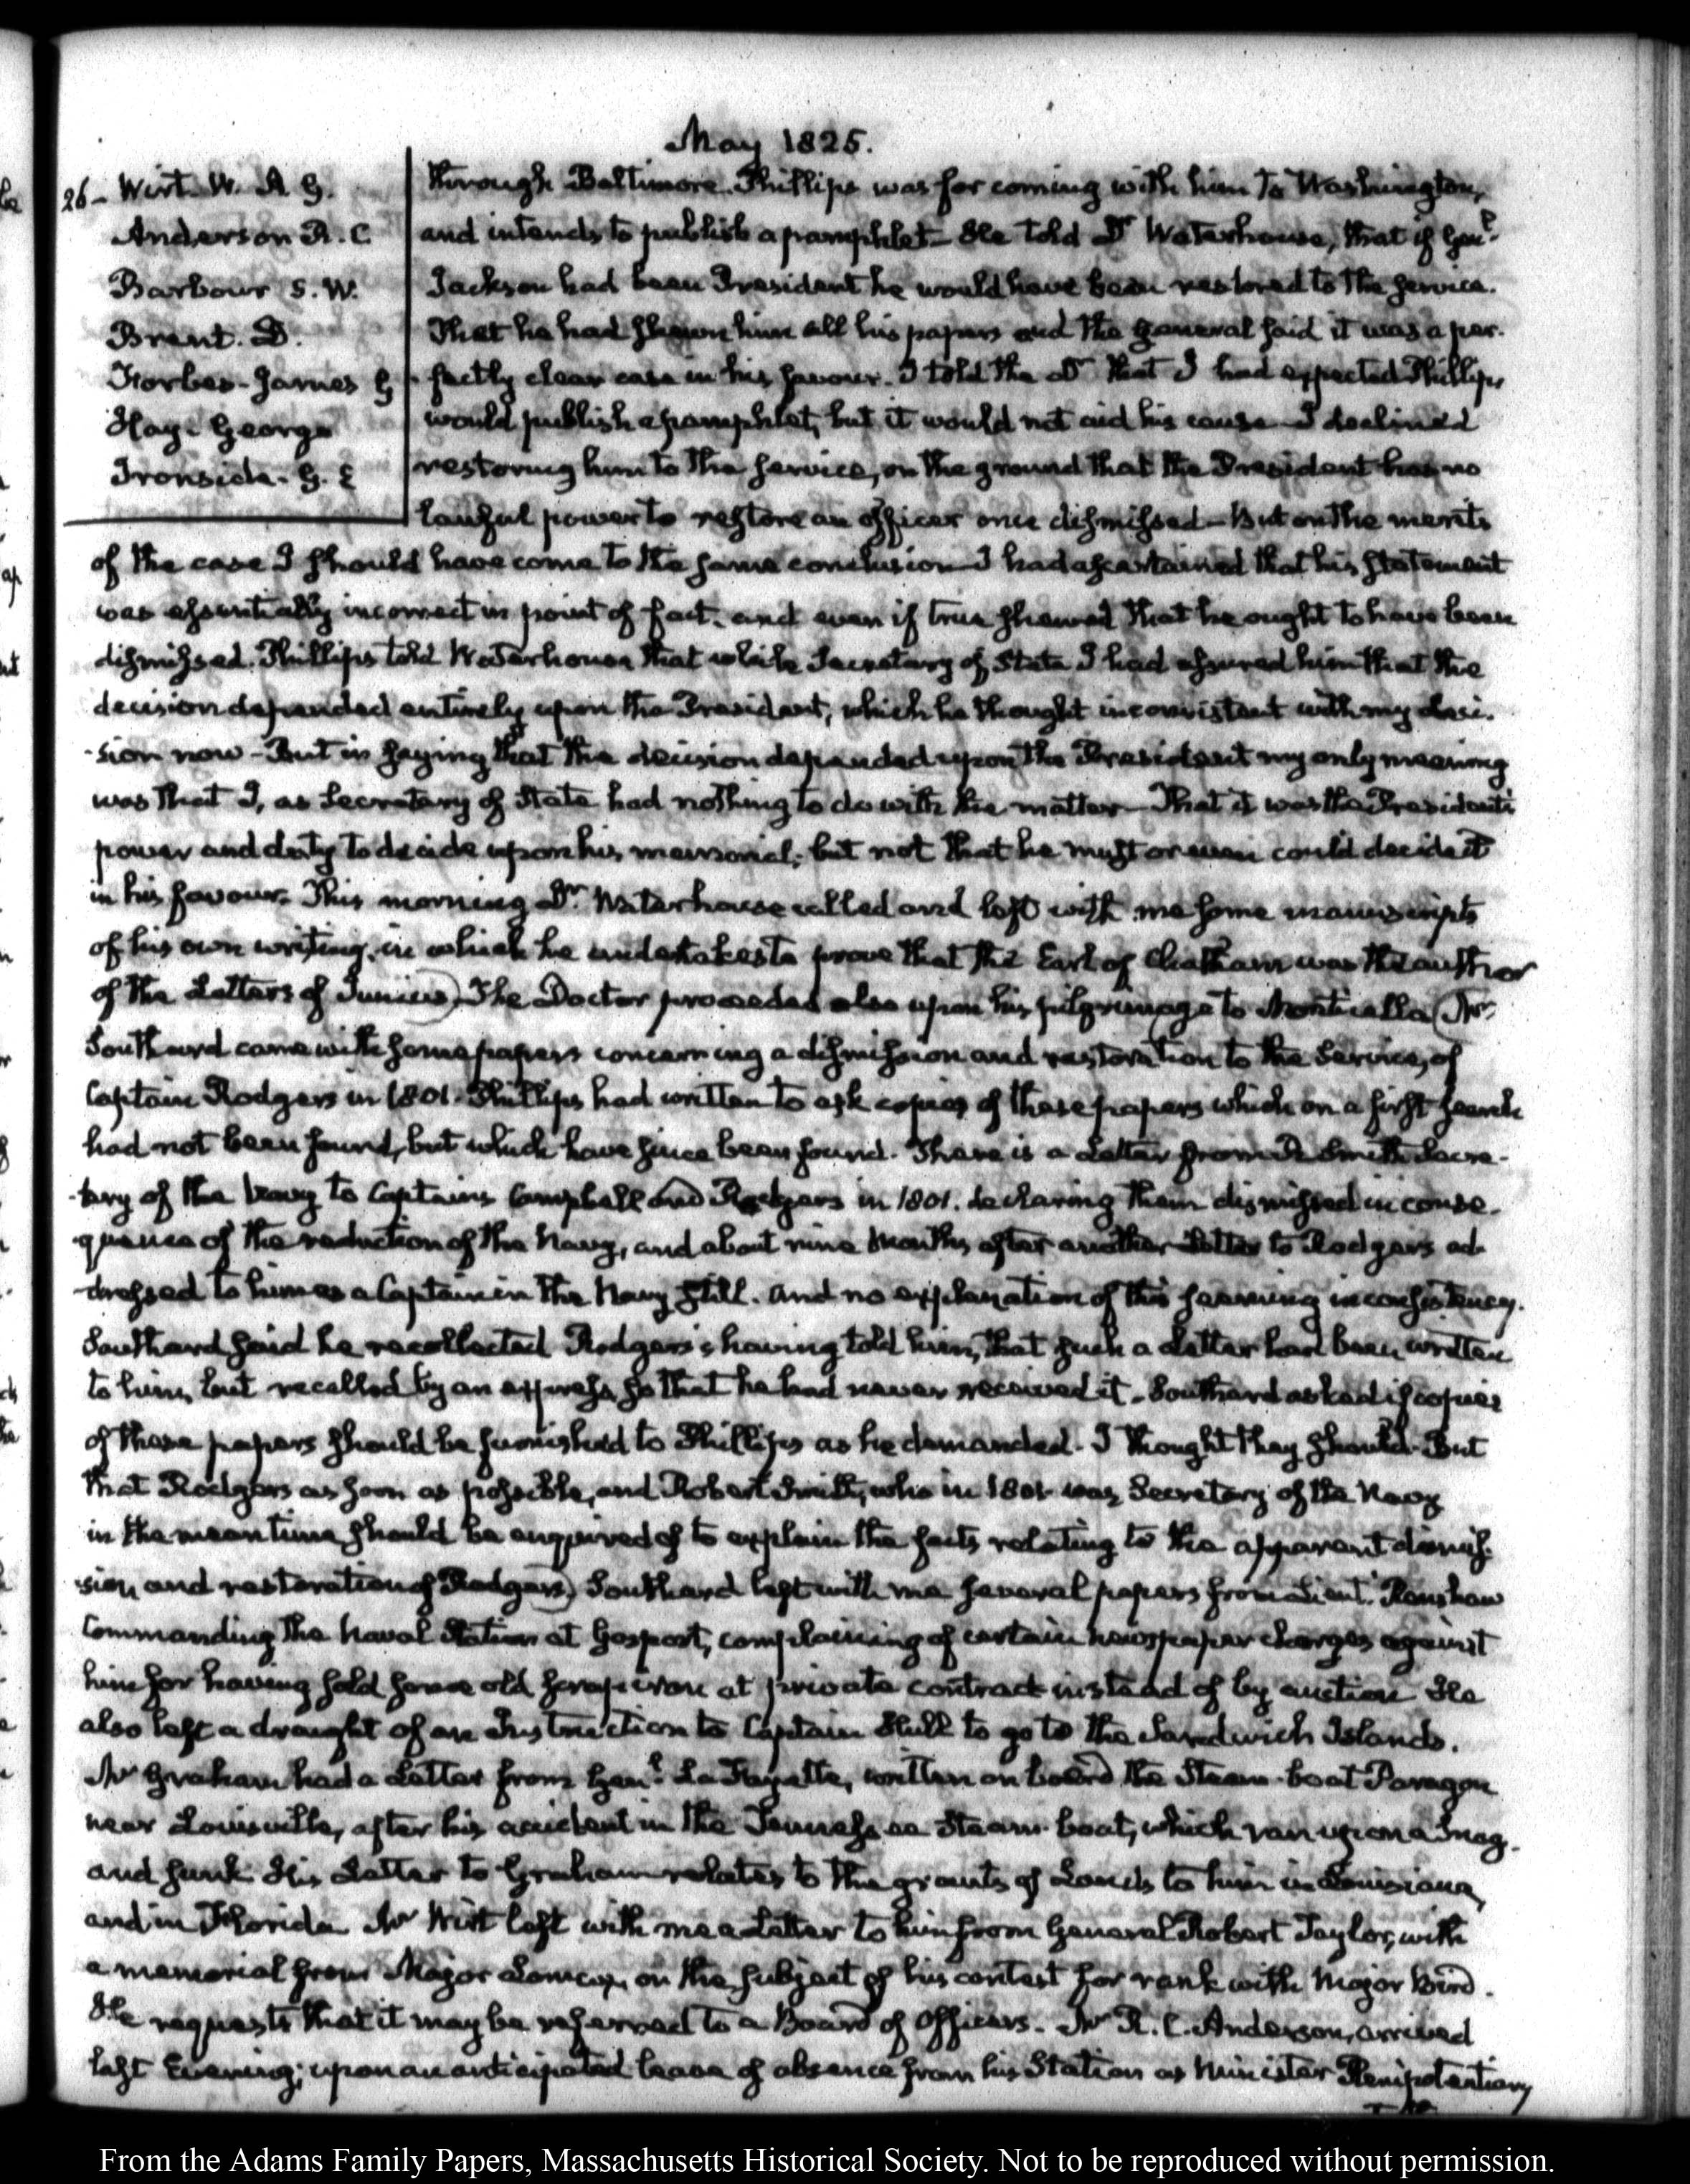 May 1825.
26- Wirt. W. A G.
Anderson R. C
Barbour S. W.
Brent. D.
Forbes- James G
Hay- George
Ironside- G. E
through Baltimore. Phillips was for coming with him to Washington,
and intends to publish a pamphlet- He told Dr Waterhouse, that if Genl.
Jackson had been President he would have been restored to the service.
That he had shewn him all his papers and the General said it was a per-
fectly clear case in his favour. I told the Dr that I had expected Phillips
would publish a pamphlet, but it would not aid his cause- I declined
restoring him to the service, on the ground that the President has no
lawful power to restore an officer once dismissed- But on the merits
of the case I should have come to the same conclusion- I had ascertained that his statement
was essentially incorrect in point of fact, and even if true shewed that he ought to have been
dismissed. Phillips told Waterhouse that while Secretary of State I had assured him that the
decision depended entirely upon the President, which he thought inconsistent with my deci-
-sion now- But in saying that the decision depended upon the President my only meaning
was that I, as Secretary of State had nothing to do with the matter- That it was the President's
power and duty to decide upon his memorial; but not that he must or even could decide it
in his favour. This morning Dr. Waterhouse called and left with me some manuscripts
of his own writing, in which he undertakes to prove that the Earl of Chatham was the author
of the Letters of Junius) The Doctor proceeded also upon his pilgrimage to Monticello (Mr.
Southard came with some papers concerning a dismission and restoration to the Service, of
Captain Rodgers in 1801. Phillips had written to ask copies of these papers which on a first search
had not been found, but which have since been found. There is a Letter from R Smith Secre-
-tary of the Navy to Captains Campbell and Rodgers in 1801. declaring them dismissed in conse-
quence of the reduction of the Navy, and about nine Months after another Letter to Rodgers ad-
-dressed to him as a Captain in the Navy still. and no explanation of this seeming inconsistency.
Southard said he recollected Rodgers's having told him, that such a Letter had been written
to him, but recalled by an express so that he had never received it. Southard asked if copies
of these papers should be furnished to Phillips as he demanded. I thought they should. But
that Rodgers as soon as possible, and Robert Smith, who in 1801 was Secretary of the Navy
in the mean time should be enquired of to explain the facts relating to the apparent dismis-
-sion and restoration of Rodgers) Southard left with me several papers from Lieut. Renshaw
Commanding the Naval Station at Gosport, complaining of certain newspaper charges against
him for having sold some old scrap iron at private contract instead of by auction He
also left a draught of an Instruction to Captain Hull to go to the Sandwich Islands.
Mr Graham had a Letter from Genl. La Fayette, written on board the Steam-boat Paragon
near Louisville, after his accident in the Tennessee Steam-boat, which ran upon a Snag.
and sunk His Letter to Graham relates to the grants of Lands to him in Louisiana,
and in Florida Mr Wirt left with me a Letter to him from General Robert Taylor, with
a memorial from Major Lomax, on the subject of his contest for rank with Major Bird.
He requests that it may be referred to a Board of Officers. Mr R. C. Anderson, arrived
last Evening; upon an anticipated leave of absence from his Station as Minister Plenipotentiary
From the Adams Family Papers, Massachusetts Historical Society. Not to be reproduced without permission.